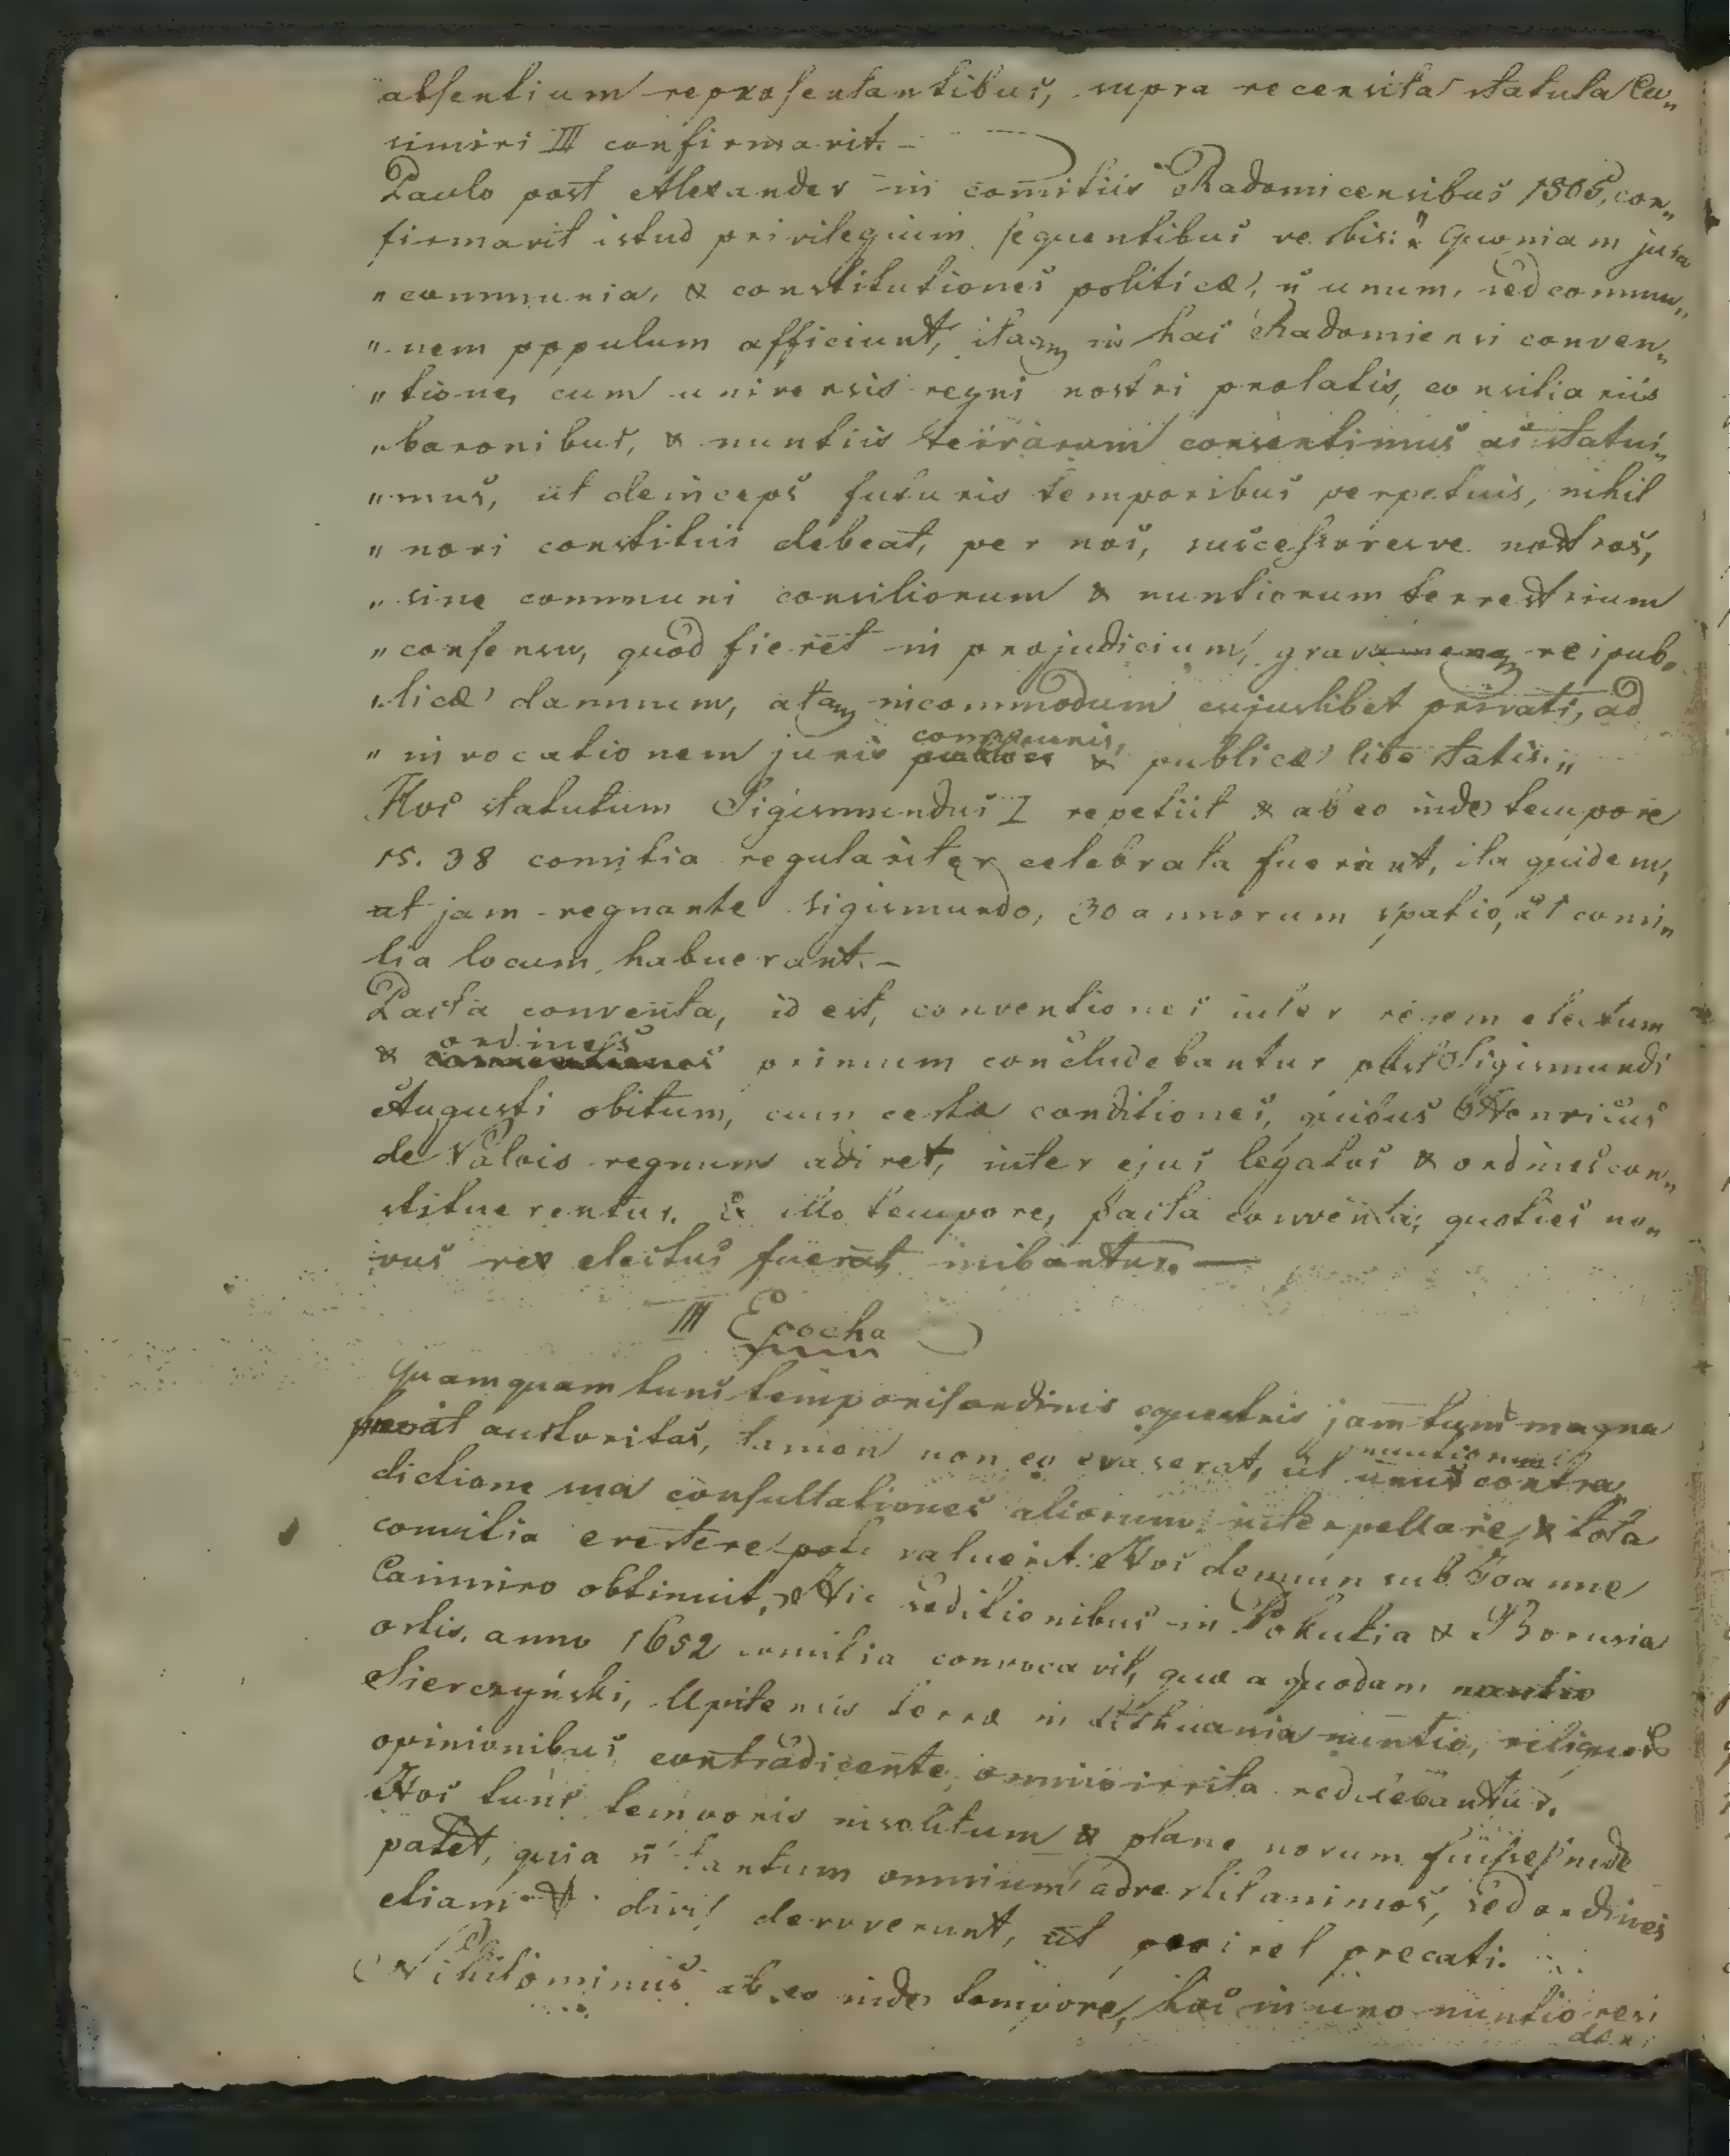 absentium repræsentantibus, supra recensita statuta Ca„
simiri III confirmavit. –
Paulo post Alexander in comitiis Radomicensibus 1505, con„
firmavit istud privilegium sequentibus verbis: „Quoniam jura
„communia, & constitutiones politicæ, ñ unum, sed commu„
„nem populum afficiunt, itaq in hac Radomiensi conven„
„tione, cum universis regni nostri prælatis, consiliariis
„baronibus, & nuntiis terrarum consentimus ac statui„
„mus, ut deinceps futuris temporibus perpetuis, nihil
„novi constitui debeat, per nos, successoresve nostros,
„sine communi consiliorum & nuntiorum terrestrium
„consensu, quod fieret in præjudicium, gravamenq reipub„
„licæ damnum, atq incommodum cujuslibet privati, ad
„invocationem juris communis, & publicæ libertatis.„
Hoc statutum Sigismundus I repetiit & ab eo inde tempore
15. 38 comitia regulariter celebrata fuerant, ita quidem,
ut jam regnante Sigismundo, 30 annorum spatio, 21 comi„
tia locum habuerant. –
Pacta conventa, id est, conventiones inter regem electum
& ordines primum concludebantur post Sigismundi
Augusti obitum, cum certæ conditiones, quibus Henricus
de Valois regnum adiret, inter ejus legatos & ordines con„
stituerentur. E illo tempore, pacta conventa, quoties no„
vus rex electus fuerat, inibantur. —
III Epocha
Quamquam tunc temporis ordinis equestris jam tum magna
fuerat auctoritas, tamen non eo evaserat, ut unus nuntiorum contra
dictione sua consultationes aliorum interpellare, & tota
comitia evertere valuerit. Hoc demum sub Joanne
Casimiro obtinuit. Hic seditionibus in Pokutia & Borussia
ortis, anno 1652 comitia convocavit, quæ a quodam
Sierczyński, Upitensis terræ in Lithuania nuntio, reliquorum
opinionibus contradicente, omnino irrita reddebantur.
Hoc tunc temporis insolitum & plane novum fuisse, inde
patet, quia ñ tantum omnium advertit animos, sed ordines
etiam diris devoverunt, ut periret precati.
Nihilominus ab eo inde tempore, hoc in uno nuntio resi
den